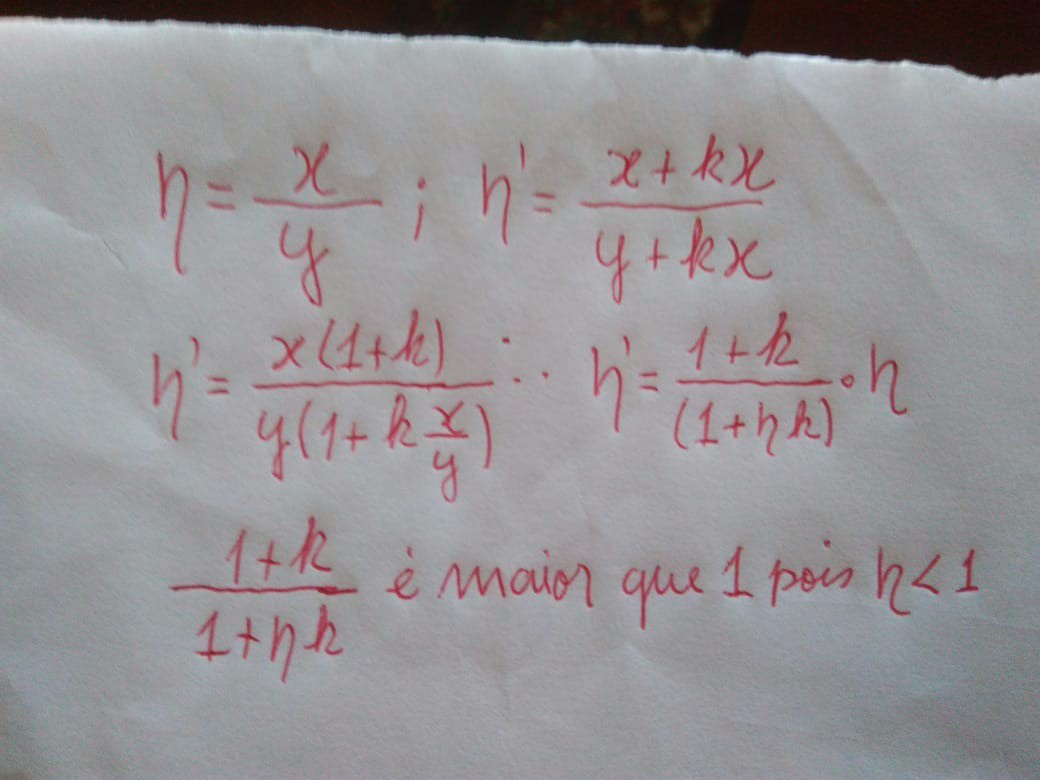 η = x/y ; η' = (x + kx)/(y + kx)
η' = x(1+k)/y(1+k x/y) ∴ η' = (1+k)/(1+ηk) · η
(1+k)/(1+ηk) é maior que 1 pois η < 1